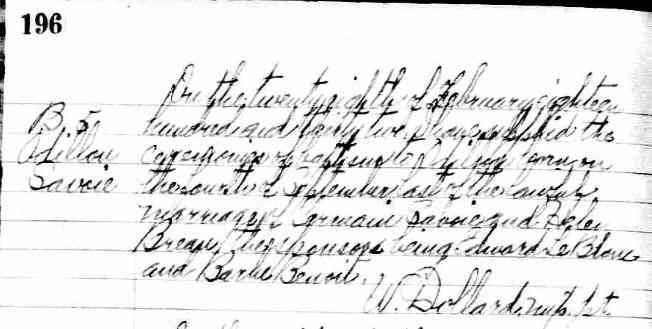 196
On the twenty eighth of February eighteen
B. 5
hundred and forty two, I have supplied the
Odillon
ceremonies of baptism to Odillon born on
Savoie
the fourth of September last of the lawful
marriage of Germain Savoie and Helen
Breau, the sponsors being Edward LeBlanc
and Barbe Benoit.
W. Dollard, miss. pst.